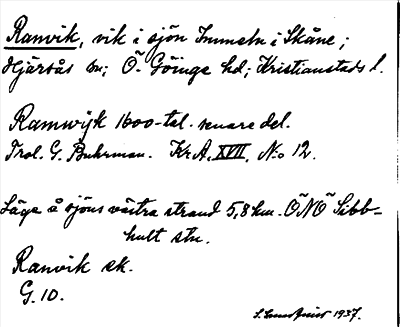 Ranvik, vik i sjön Immeln i Skåne;
Hjärsås sn; Ö. Göinge hd; Kristianstads l.
Ramwijk 1600-tal. senare del.
Trol. G. Buhrman. Kr. A. XVII, No 12.
Läge å sjöns västra strand 5,8 km. ÖNÖ Sibb-
hult stn.
Ranvik sk.
G. 10.
1937.